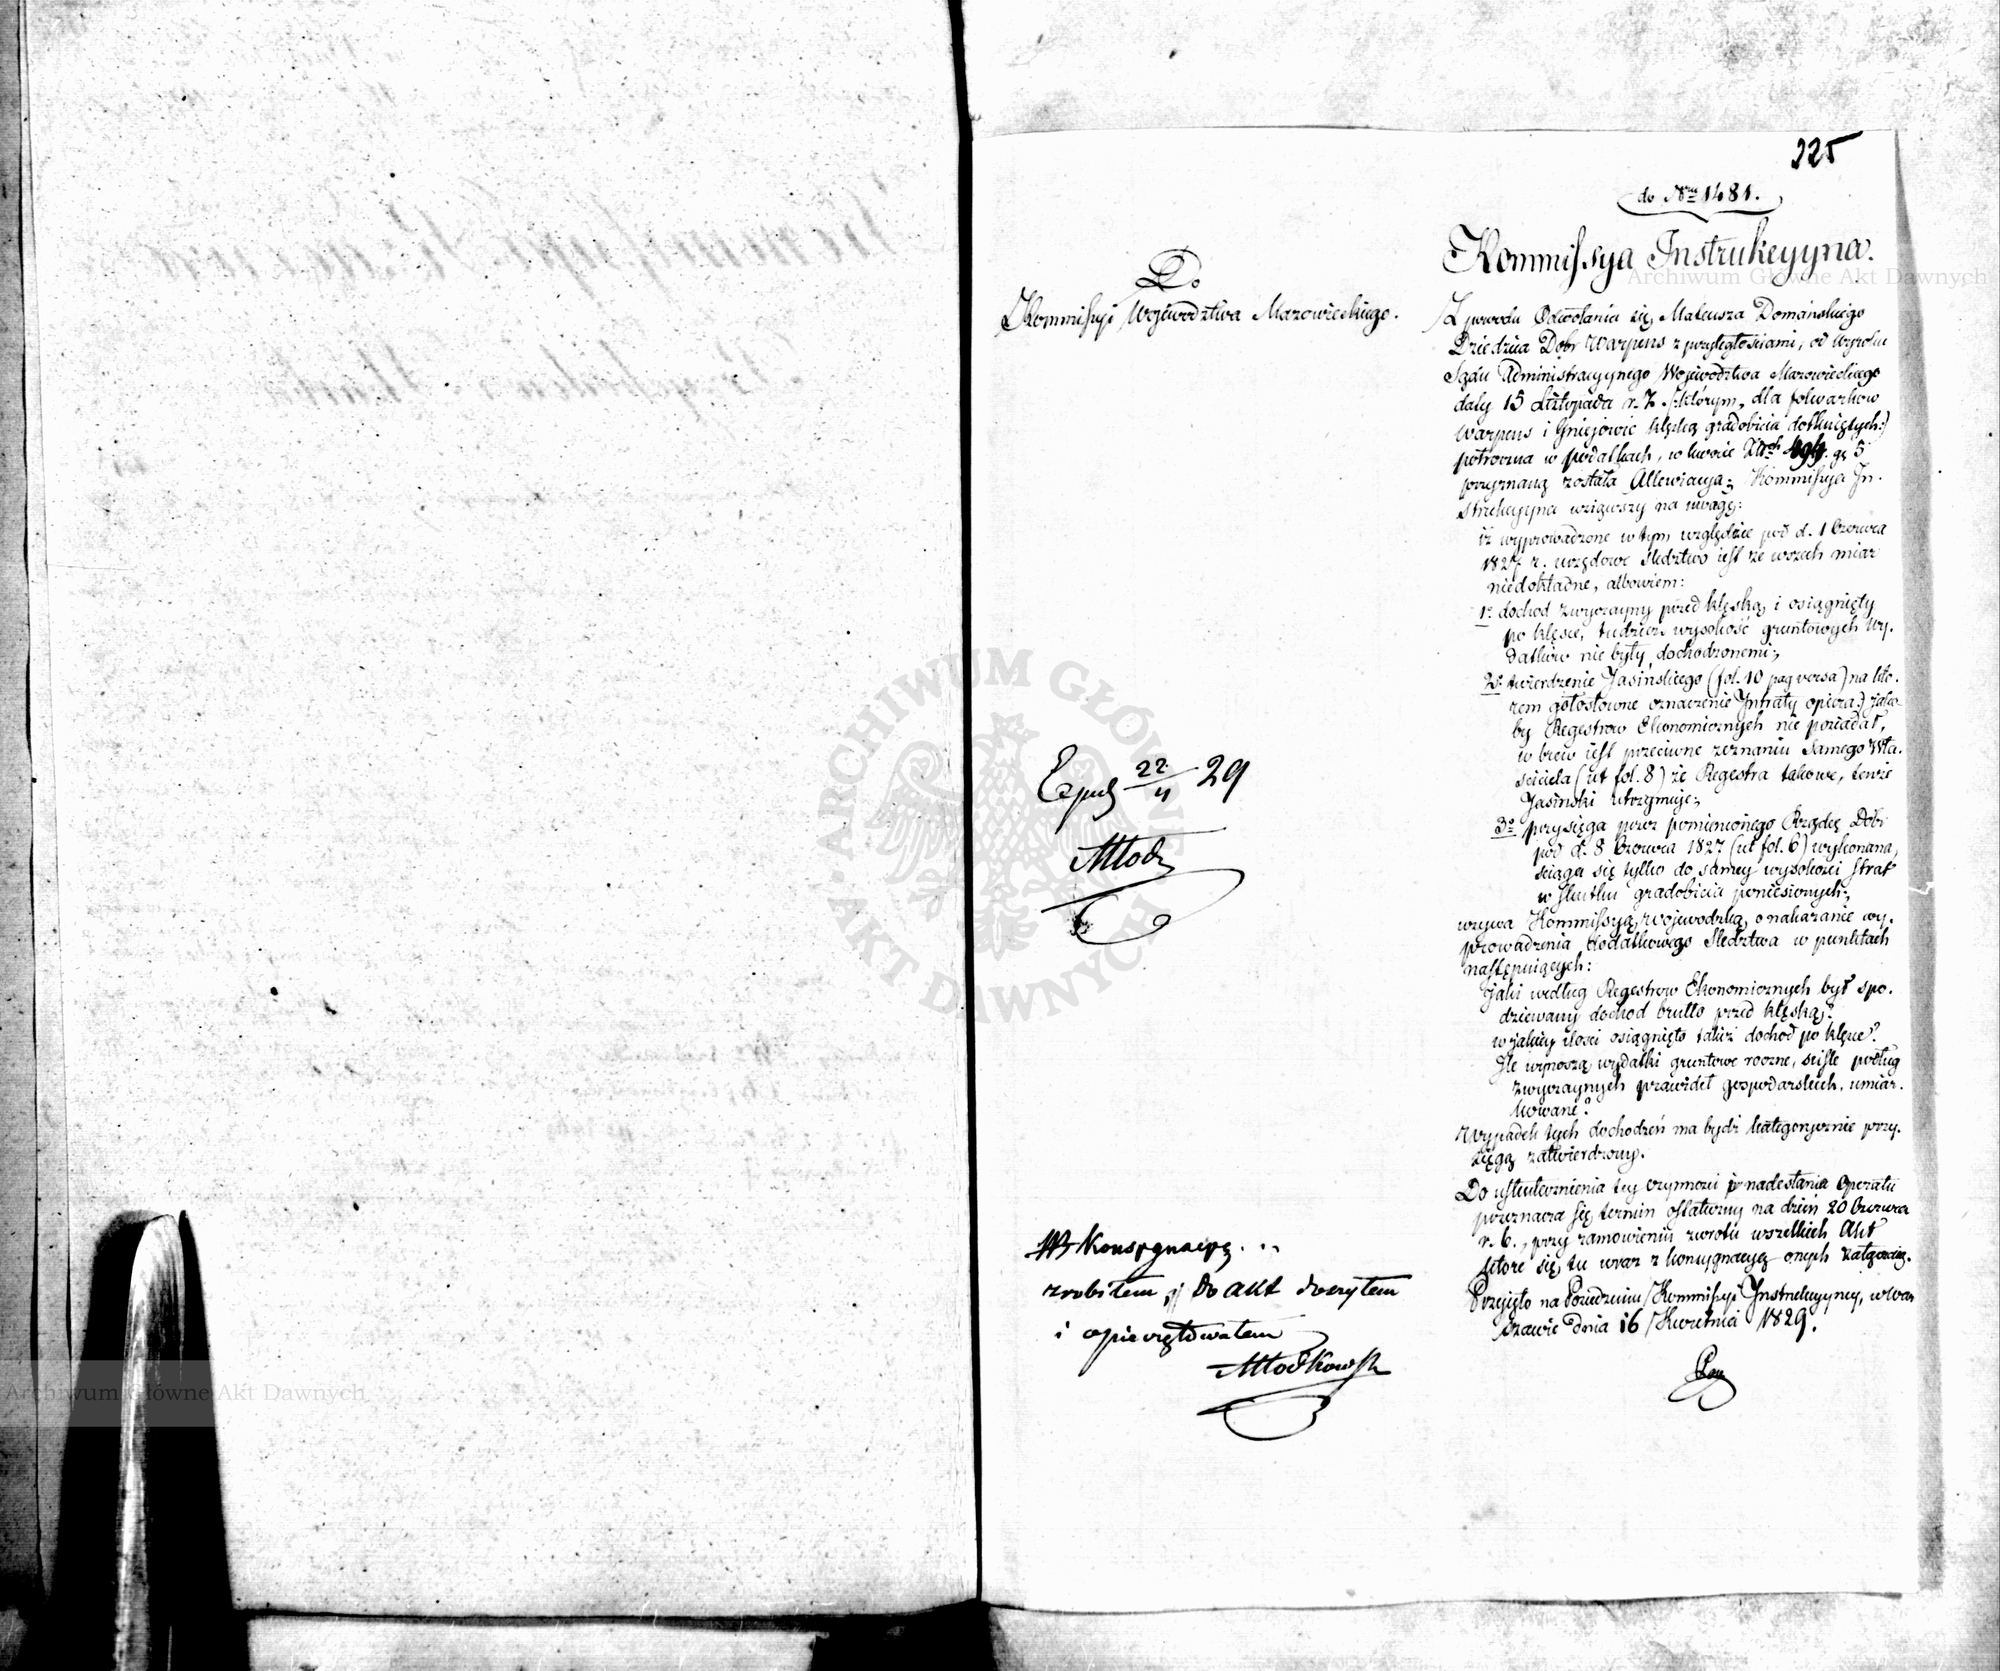 225
do Nru 1481.
Kommissya Instrukcyyna.
Do
Kommissyi Województwa Mazowieckiego.
Z powodu Odwołania się, Mateusza Domańskiego
Dziedzica Dobr Warpens z przyległościami, od Wyroku
Sądu Administracyynego Województwa Mazowieckiego
daty 15 Listopada r. z. /:którym, dla folwarków
Warpens i Gniejowic klęską gradobicia dotkniętych:/
potrocna w podatkach, w kwocie Złoch 494. gr 5
przyznaną została Allewiacya; Kommissya In-
strukcyyna wziąwszy na uwagę:
iż wyprowadzone w tym względzie pod d. 1 Czerwca
1827 r. urzędowe śledztwo iest ze wszech miar
niedokładne, albowiem:
1o dochod zwyczayny przed klęską, i osiągnięty
po klęsce, tudzież wysokość gruntowych wy-
datków nie były dochodzonemi;
2o twierdzenie Jasińskiego (fol. 10 pag versa) na któ-
rem gołosłowne oznaczenie Intraty opiera:/ jako-
by Regestrow Ekonomicznych nie posiadał,
wbrew iest przeciwne zeznaniu samego Wła-
sciciela (ut fol. 8) że Regestra takowe, tenże
Jasiński utrzymuje;
3o przysięga przez pomienionego Rządcę Dobr
pod d. 8 Czerwca 1827 (ut fol. 6) wykonana,
sciąga się tylko do samey wysokości strat
w skutku gradobicia poniesionych;
wzywa Kommissyą Wojewodzką, o nakazanie wy-
prowadzenia dodatkowego śledztwa w punktach
następuiących:
jaki według Regestrow Ekonomicznych był spo-
dziewany dochod brutto przed klęską?
w jakiey ilości osiągnięto takiż dochod po klęsce?
Ile wynoszą wydatki gruntowe roczne, sciśle podług
zwyczaynych prawideł gospodarskich, umiar-
kowane?
Wypadek tych dochodzeń ma bydź kategorycznie przy-
sięgą zatwierdzony.
Do uskutecznienia tey czynności i nadesłania Operatu
przeznacza się termin ostateczny na dzień 20 Czerwca
r. b., przy zamowieniu zwrotu wszelkich Akt
które się tu wraz z konsygnacyą onych załączaią.
Przyięto na Posiedzeniu Kommissyi Instrukcyyney, w War-
szawie dnia 16 Kwietnia 1829.
Exped 22/4 29
Młodz
NB Konsygnacyę...
zrobiłem, i do akt doszyłem
i opieczętowałem
Młodkowsk
Archiwum Główne Akt Dawnych
Archiwum Główne Akt Dawnych
ARCHIWUM GŁÓWNE AKT DAWNYCH